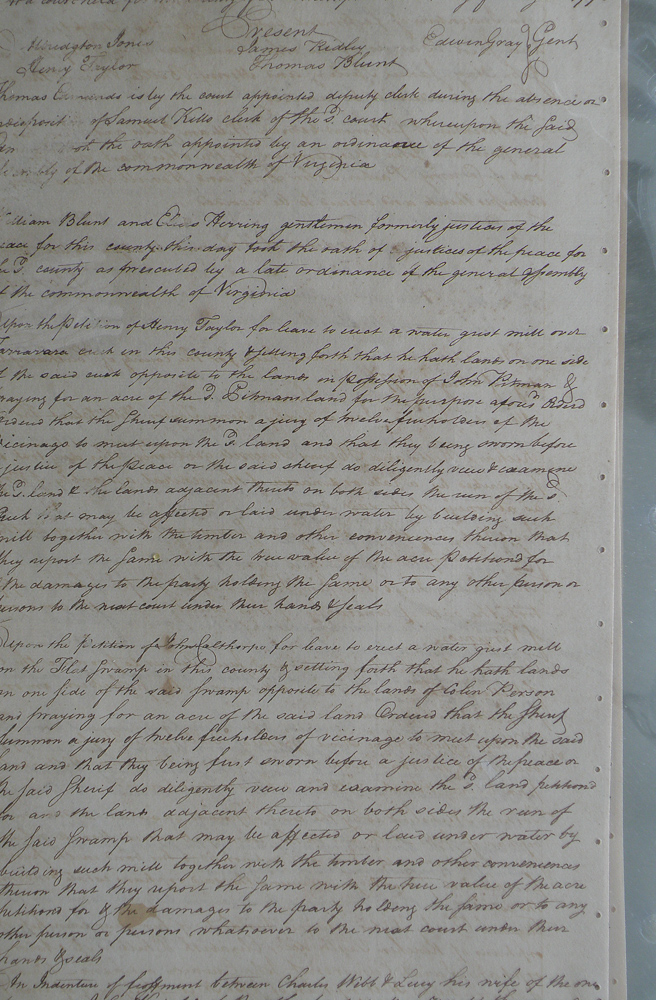 Present
Jones James Ridley Edwin Gray Gent
Henry Taylor Thomas Blunt
Thomas Edmunds is by the court appointed deputy clerk during the absence or
of Samuel Kello clerk of the sd. court whereupon the said
the oath appointed by an ordinance of the general
of the commonwealth of Virginia
William Blunt and Elias Herring gentlemen formerly justices of the
peace for this county this day took the oath of justices of the peace for
the sd. county as prescribed by a late ordinance of the general assembly
of the commonwealth of Virginia
Upon the Petition of Henry Taylor for leave to erect a water grist mill over
creek in this county & setting forth that he hath lands on one side
of the said creek opposite to the lands in possession of John Pitman &
praying for an acre of the sd. Pitmans land for the purpose aforesd.
ordered that the Sherif summon a jury of twelve freeholders of the
vicinage to meet upon the sd. land and that they being sworn before
justice of the peace or the said sherif do diligently view & examine
the sd. land & the lands adjacent thereto on both sides the run of the sd.
Creek that may be affected or laid under water by building such
mill together with the timber and other conveniences thereon that
they report the same with the true value of the acre petitiond for
the damages to the party holding the same or to any other person or
persons to the next court under their hands & seals
Upon the Petition of John Calthorpe for leave to erect a water grist mill
on the Flat Swamp in this county & setting forth that he hath lands
on one side of the said swamp opposite to the lands of Colin Person
and praying for an acre of the said land Ordered that the Sherif
summon a jury of twelve freeholders of vicinage to meet upon the said
land and that they being first sworn before a justice of the peace or
the said Sherif do diligently view and examine the sd. land petitiond
for and the lands adjacent thereto on both sides the run of
the said swamp that may be affected or laid under water by
building such mill together with the timber and other conveniences
thereon that they report the same with the true value of the acre
petitiond for & the damages to the party holding the same or to any
other person or persons whatsoever to the next court under their
hands & seals
An Indenture of feoffment between Charles Webb & Lucy his wife of the one